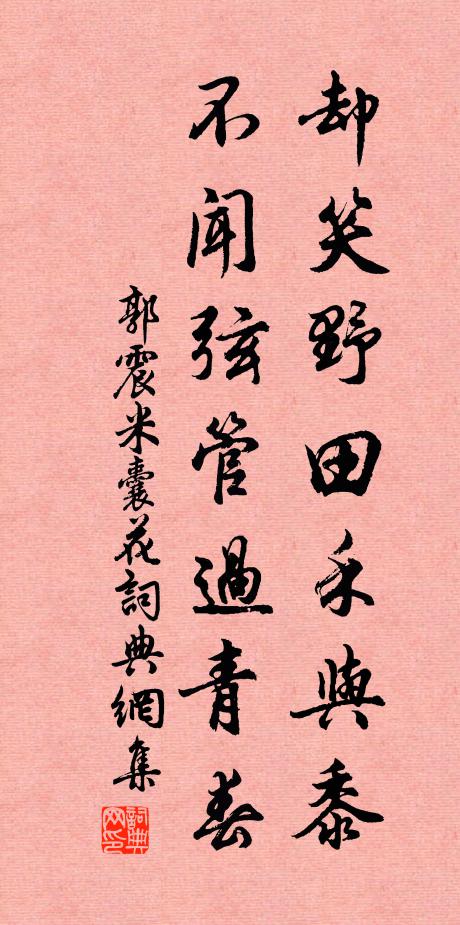 却笑野田禾與黍
不聞弦管過青春
郭震米囊花詞典網集
詞典網印